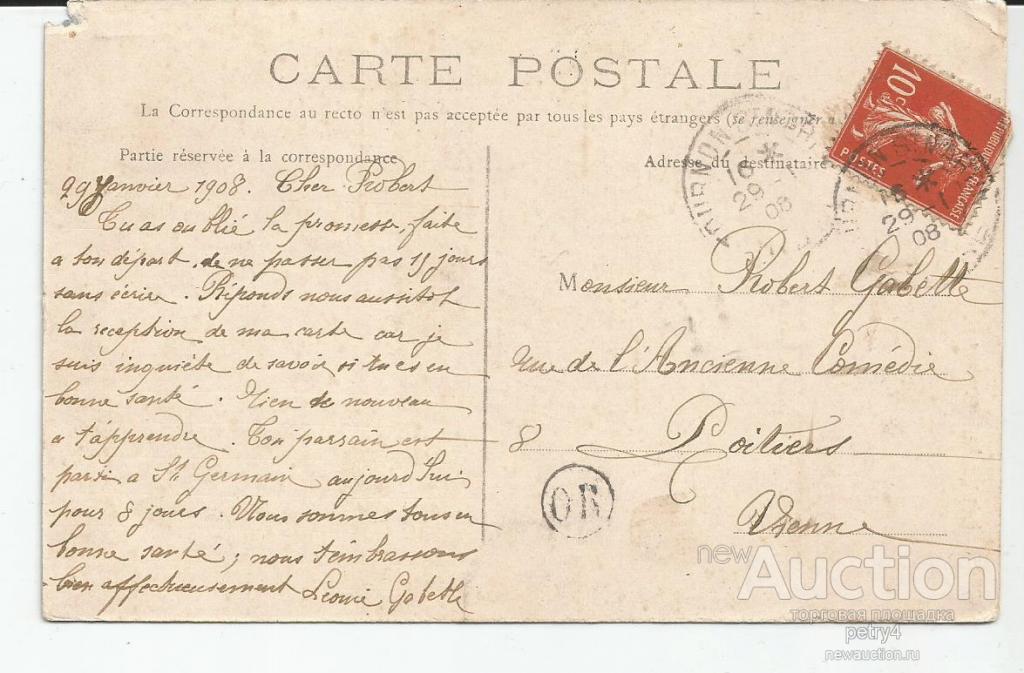 CARTE POSTALE
La Correspondance au recto n'est pas acceptée par tous les pays étrangers (se renseigner à
Partie réservée à la correspondance
29 Janvier 1908. Cher Robert
Tu as oublié la promesse, faite
a ton départ, de ne passer pas 15 jours
sans écrire. Réponds nous aussitot
la reception de ma carte car je
suis inquiète de savoir si tu es en
bonne santé. Rien de nouveau
a t'apprendre. Ton parrain est
parti a St Germain aujourd'hui
pour 8 jours. Nous sommes tous en
bonne santé; nous t'embrassons
bien affectueusement Léonie Gabette
Adresse du destinataire
10c
POSTES
REPUBLIQUE FRANÇAISE
TOURNON
29 - 1
08
29 - 1
08
Monsieur Robert Gabette
rue de l'Ancienne Comédie
8 Poitiers
Vienne
OR
newAuction
торговая площадка
petry4
newauction.ru